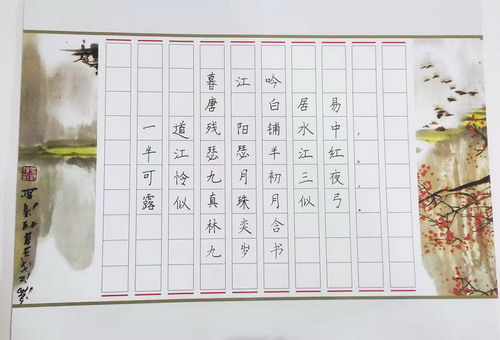 暮江吟
唐 白居易
一道残阳铺水中，
半江瑟瑟半江红。
可怜九月初三夜，
露似真珠月似弓。
林奕含
九岁书